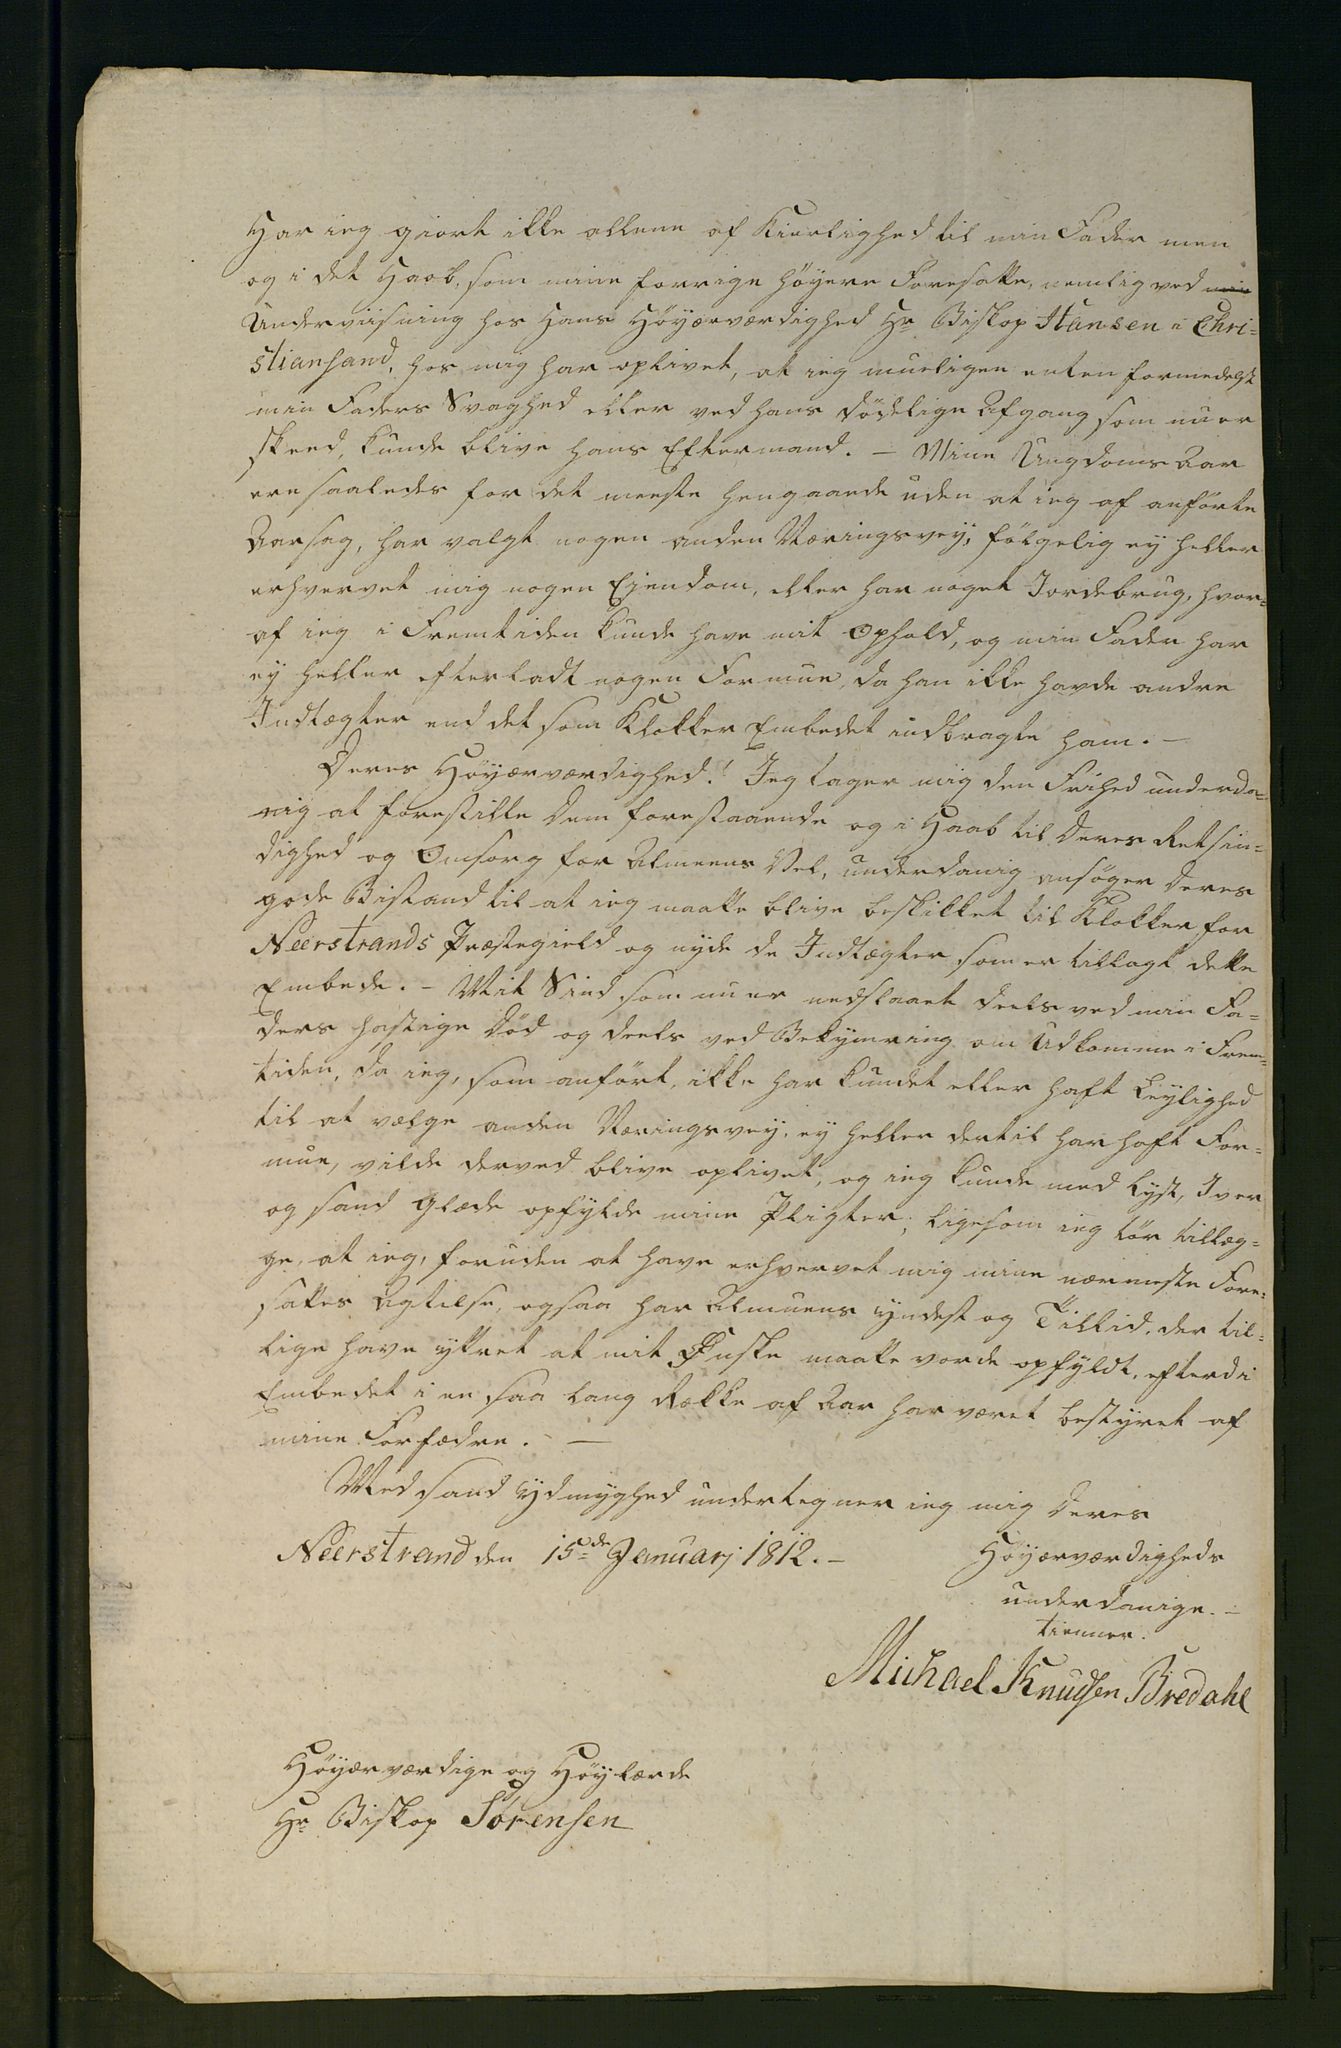 Har ieg giort ikke allene af Kierlighed til min Fader men
og i det Haab, som mine forrige høyere Foresatte, nemlig ved min
Underviisning hos Hans Høyærværdighed Hr Biskop Hansen i Chri-
stiansand, hos mig har oplivet, at ieg mueligen enten formedelst
min Faders Svaghed eller ved hans dødelige Afgang som nu er
skeed, kunde blive hans Eftermand. - Mine Ungdoms Aar
ere saaledes for det meeste hengaaede uden at ieg af anførte
Aarsag, har valgt nogen anden Næringsvey, følgelig ey heller
erhvervet mig nogen Ejendom, eller har noget Jordebrug, hvor-
af ieg i Fremtiden kunde have mit Ophold, og min Fader har
ey heller efterladt nogen Formue, da han ikke havde andre
Indtægter end det som Klokker Embedet indbragte ham. -
Deres Høyærværdighed! Jeg tager mig den Frihed underda-
nig at forestille Dem forestaaende og i Haab til Deres Retsin-
dighed og Omsorg for Almeens Vel, underdanig ansøger Deres
gode Bistand til at ieg maatte blive beskikket til Klokker for
Neerstrands Præstegield og nyde de Indtægter som er tillagt dette
Embede. - Mit Sind som nu er nedslaaet deels ved min Fa-
ders hastige Død og deels ved Bekymring om Udkomme i Frem-
tiden, da ieg, som anført, ikke har kundet eller haft Leylighed
til at vælge anden Næringsvey, ey heller dertil har haft For-
mue, vilde derved blive oplivet, og ieg kunde med Lyst, Iver
og sand Glæde opfylde mine Pligter; ligesom ieg tør tillæg-
ge, at ieg, foruden at have erhvervet mig mine nærmeste Fore-
sattes Agtelse, ogsaa har Almuens Yndest og Tillid, der til-
lige have yttret at mit Ønske maatte vorde opfyldt, efterdi
Embedet i en saa lang Række af Aar har været bestyret af
mine Forfædre. -
Med sand Ydmyghed undertegner ieg mig Deres
Neerstrand den 15de Januarj 1812. -
Høyærværdigheds
underdanige -
tienner.
Michael Knudsen Bredahl
Høyærværdige og Høylærde
Hr Biskop Sørensen